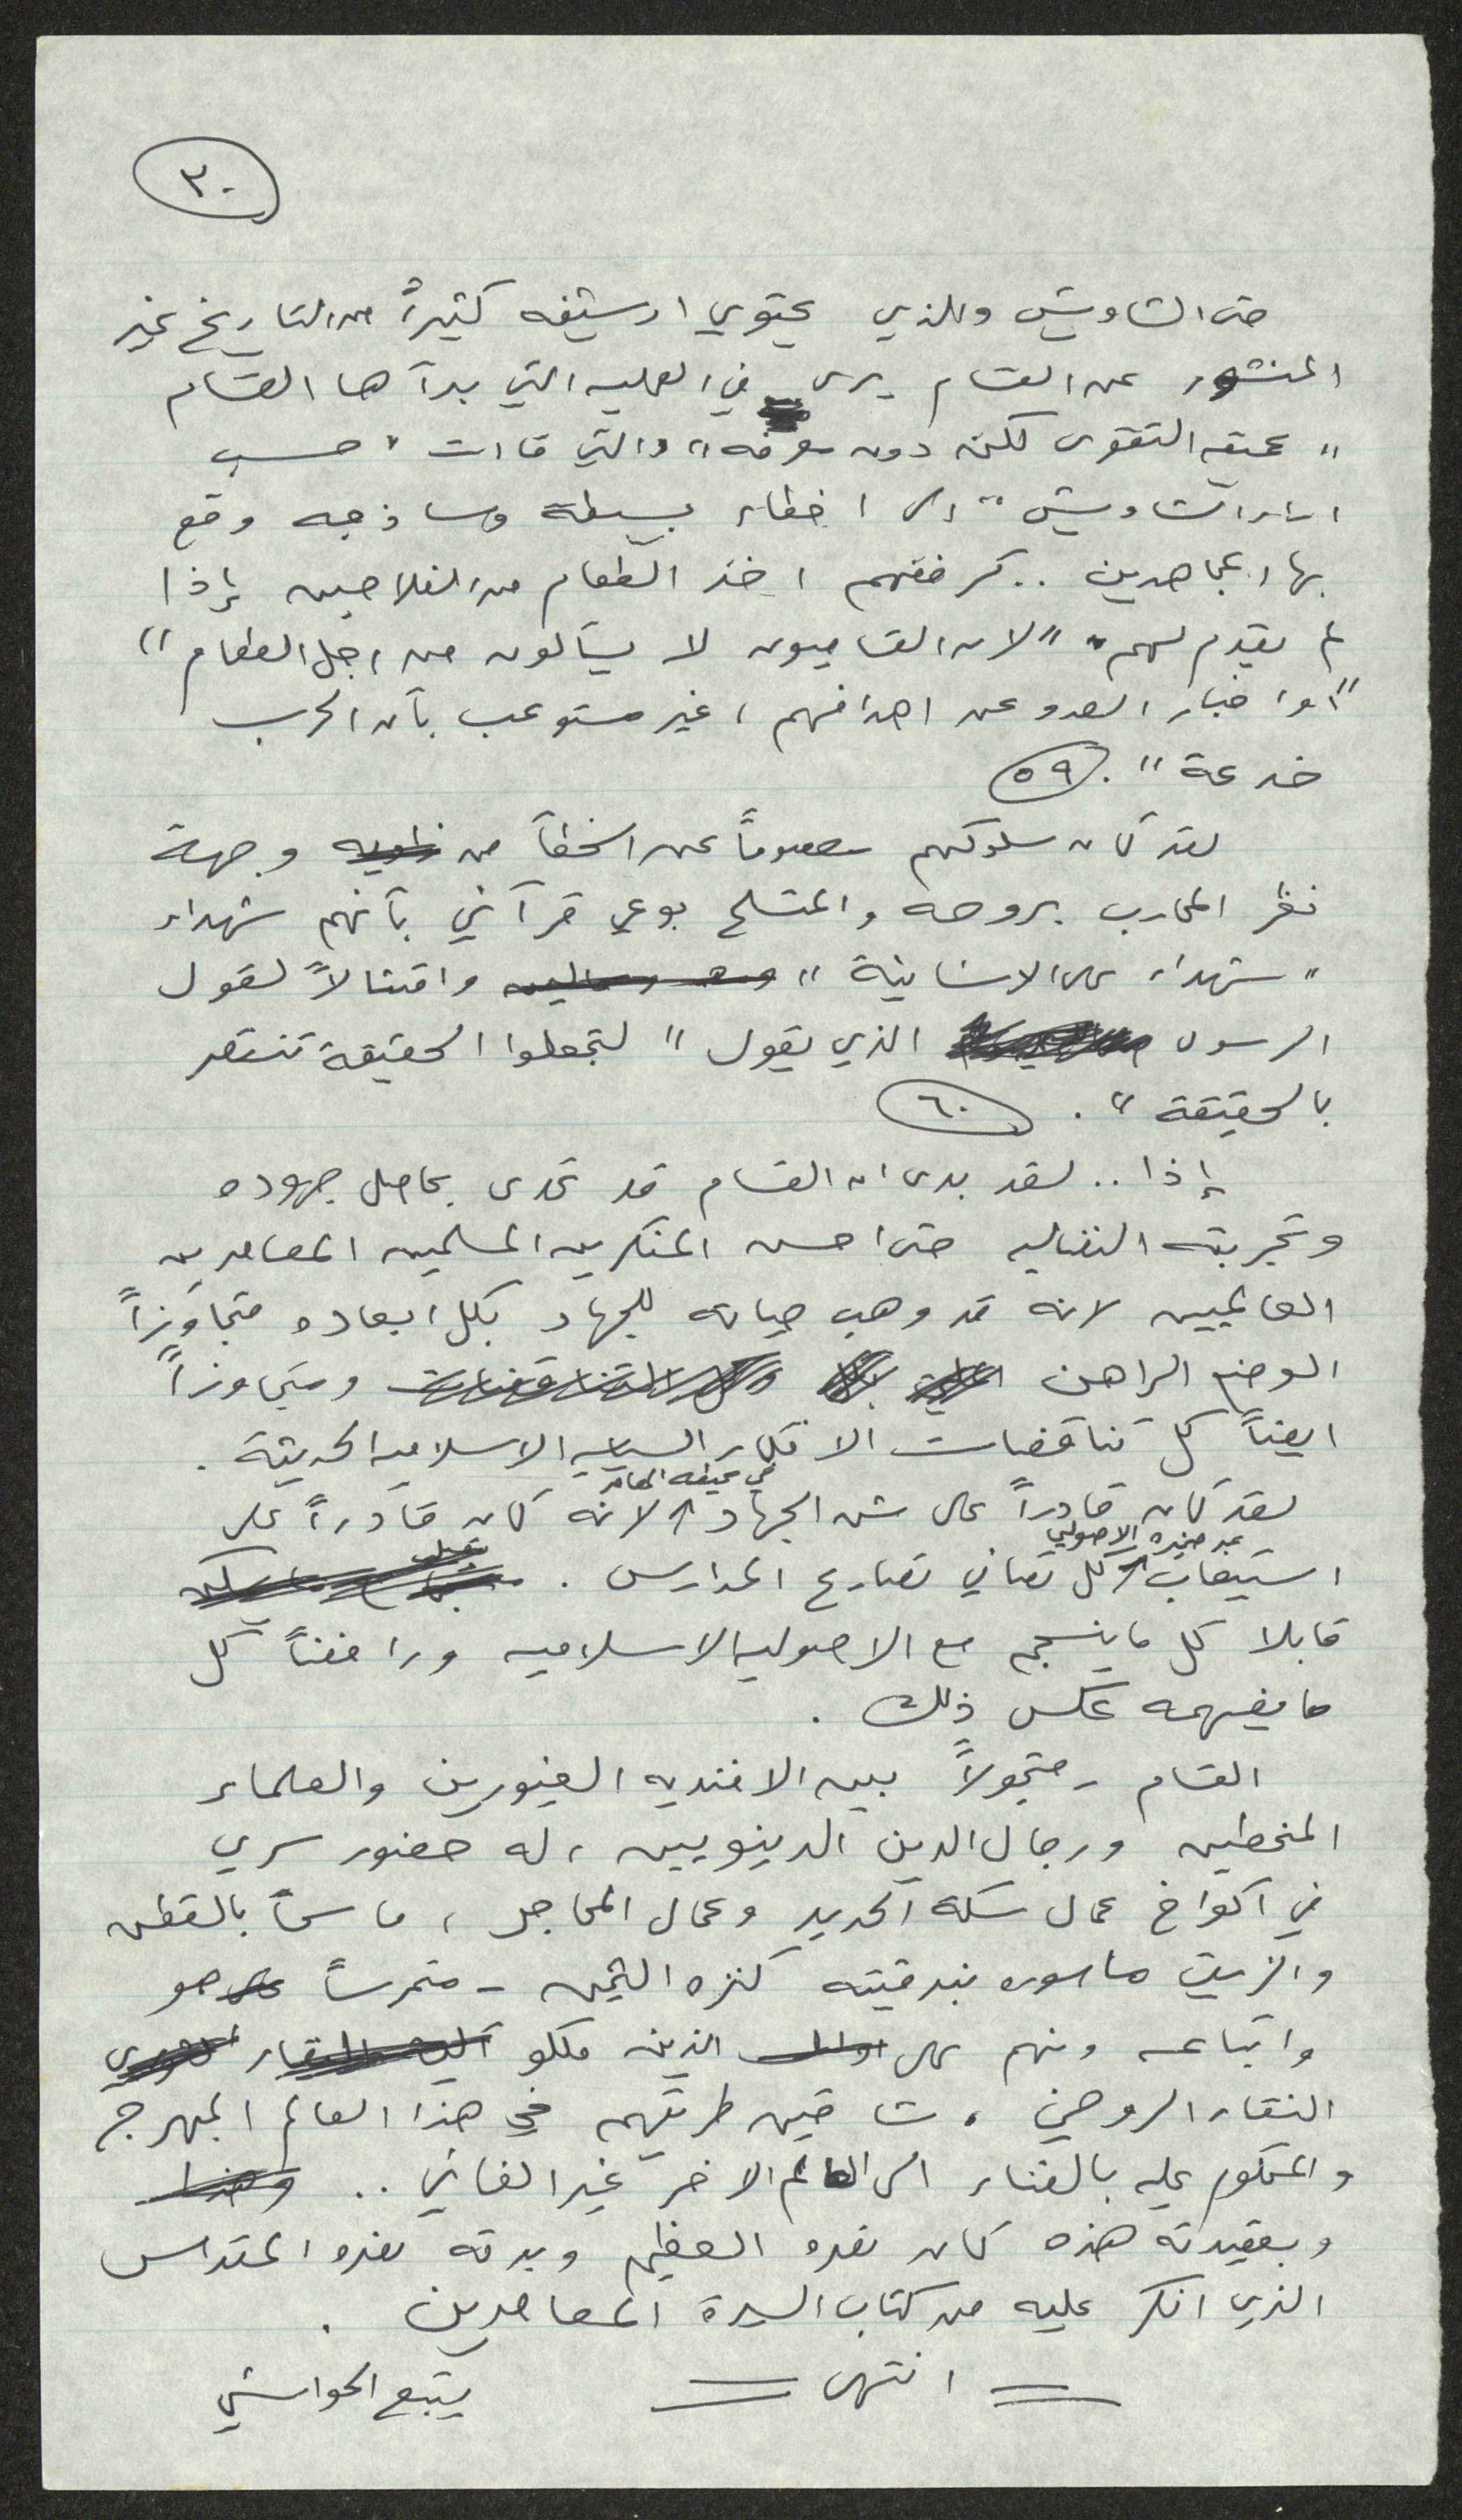 ٣٠
حتى الشاويش والذي يحتوي ارشيفه كثيراً من التاريخ غير
المنشور عن القسام يرى في العمليه التي بدآها القسام
" عميقه التقوى لكن دون معرفه" والتي قادت ، حسب
الشاويش" الى اخطاء بسيطه وساذجه وقع
بها المجاهدين .. كرفضهم اخذ الطعام من الفلاحين إذا
لم يقدم لهم، "لان القساميون لا يسآلون من اجل الطعام"
"او اخبار العدو عن اهدافهم ، غير مستوعب بآن الحرب
خدعة" . ٥٩
لقد كان سلوكهم معصوماً عن الخطآ من وجهة
نظر المحارب بروحه والمتسلح بوعي قرآني بآنهم شهداء
" شهداء على الانسانية " وامتثالاً لقول
الرسول الذي يقول " لتجعلوا الحقيقة تنتصر
بالحقيقة " . ٦٠
إذا .. لقد بدى ان القسام قد تحدى بحاصل جهوده
وتجربته النضاليه حتى احسن المفكرين المسلمين المعاصرين
العالميين لانه قد وهب حياته للجهاد بكل ابعاده متجاوزاً
الوضع الراهن ومتجاوزاً
ايضاً كل تناقضات الافكار السياسيه الاسلاميه الحديثة .
في محيطه المعاصر
لقد كان قادراً على شن الجهاد لانه كان قادراً على
عبر ضميره الاصولي
استيعاب كل تعاني تصارع المدارس .
قابلا كل ما ينسجم مع الاصوليه الاسلاميه ورافضاً كل
ما يفهمه عكس ذلك .
القسام - متجولاً بين الافنديه الغيورين والعلماء
المنحطين ورجال الدين الدينويين ، له حضور سري
في اكواخ عمال سكة الحديد وعمال المحاجر ، ماسحاً بالقطن
والزيت ماسوره بندقيته كنزه الثمين - متمرساً هو
واتباعه ومنهم على الذين ملكو
النقاء الروحي ، شاقين طريقهم في هذا العالم المبهرج
والمحكوم عليه بالفناء الى العالم الاخر غير الفاني ..
وبعقيدته هذه كان نصره العظيم وبدقه نصره المقداس
الذي انكر عليه من كتاب السيرة المعاصرين .
= انتهى =
يتبع الحواشي